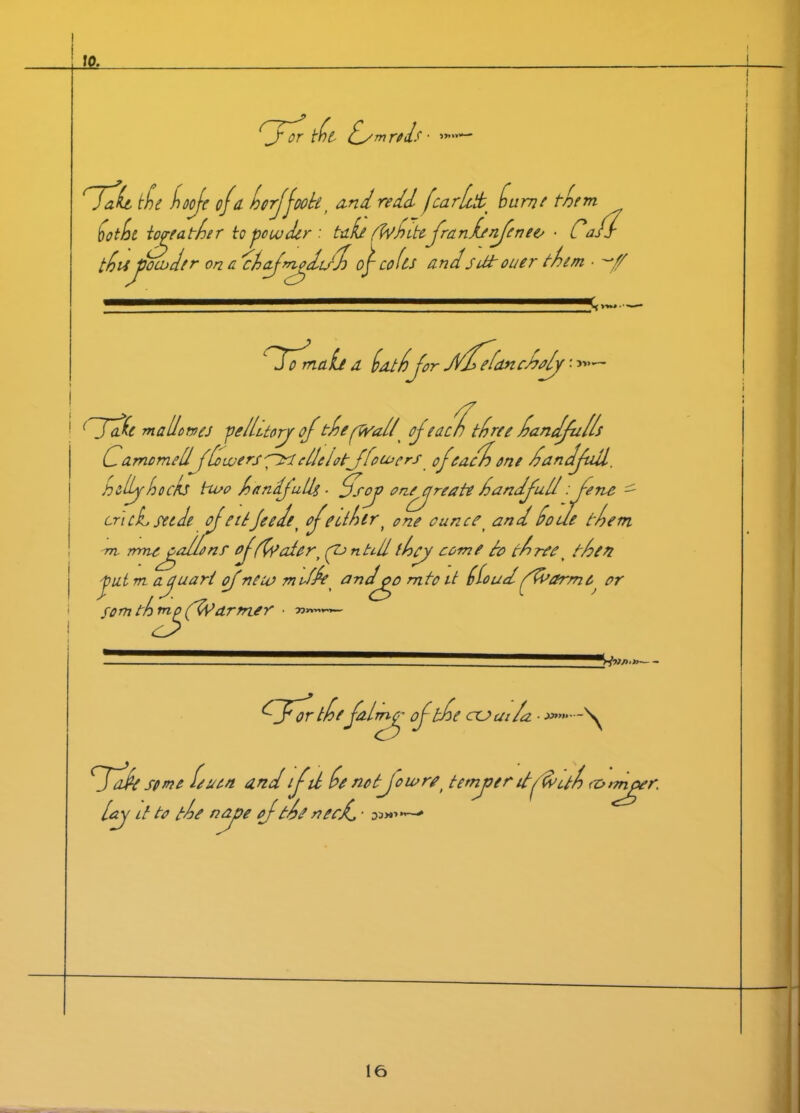 10.
For the Emrods
Take the hoofe of a horsfoote, and redd scarlett, burne them
bothe togeather to powder: take white frankensenee. Cast
this powder on a chafingdish of coles and sitt ouer them.
To make a bath for Melancholy:
Take mallowes pellitory of the wall, of each three handfulls
Camomell flowers, Mellelot flowers, of each one handfull.
hollyhocks two handfulls. Isop one greate handfull: fene =
crick seede of ett seede, of either, one ounce, and boile them
in nine gallons of Water, vntill they come to three, then
put in a quart of new milke, and go into it bloud Warme, or
somthing Warmer.
For the faling of the vuila.
Take some leuen and if it be not sowre, temper it with viniger.
lay it to the nape of the neck.
16